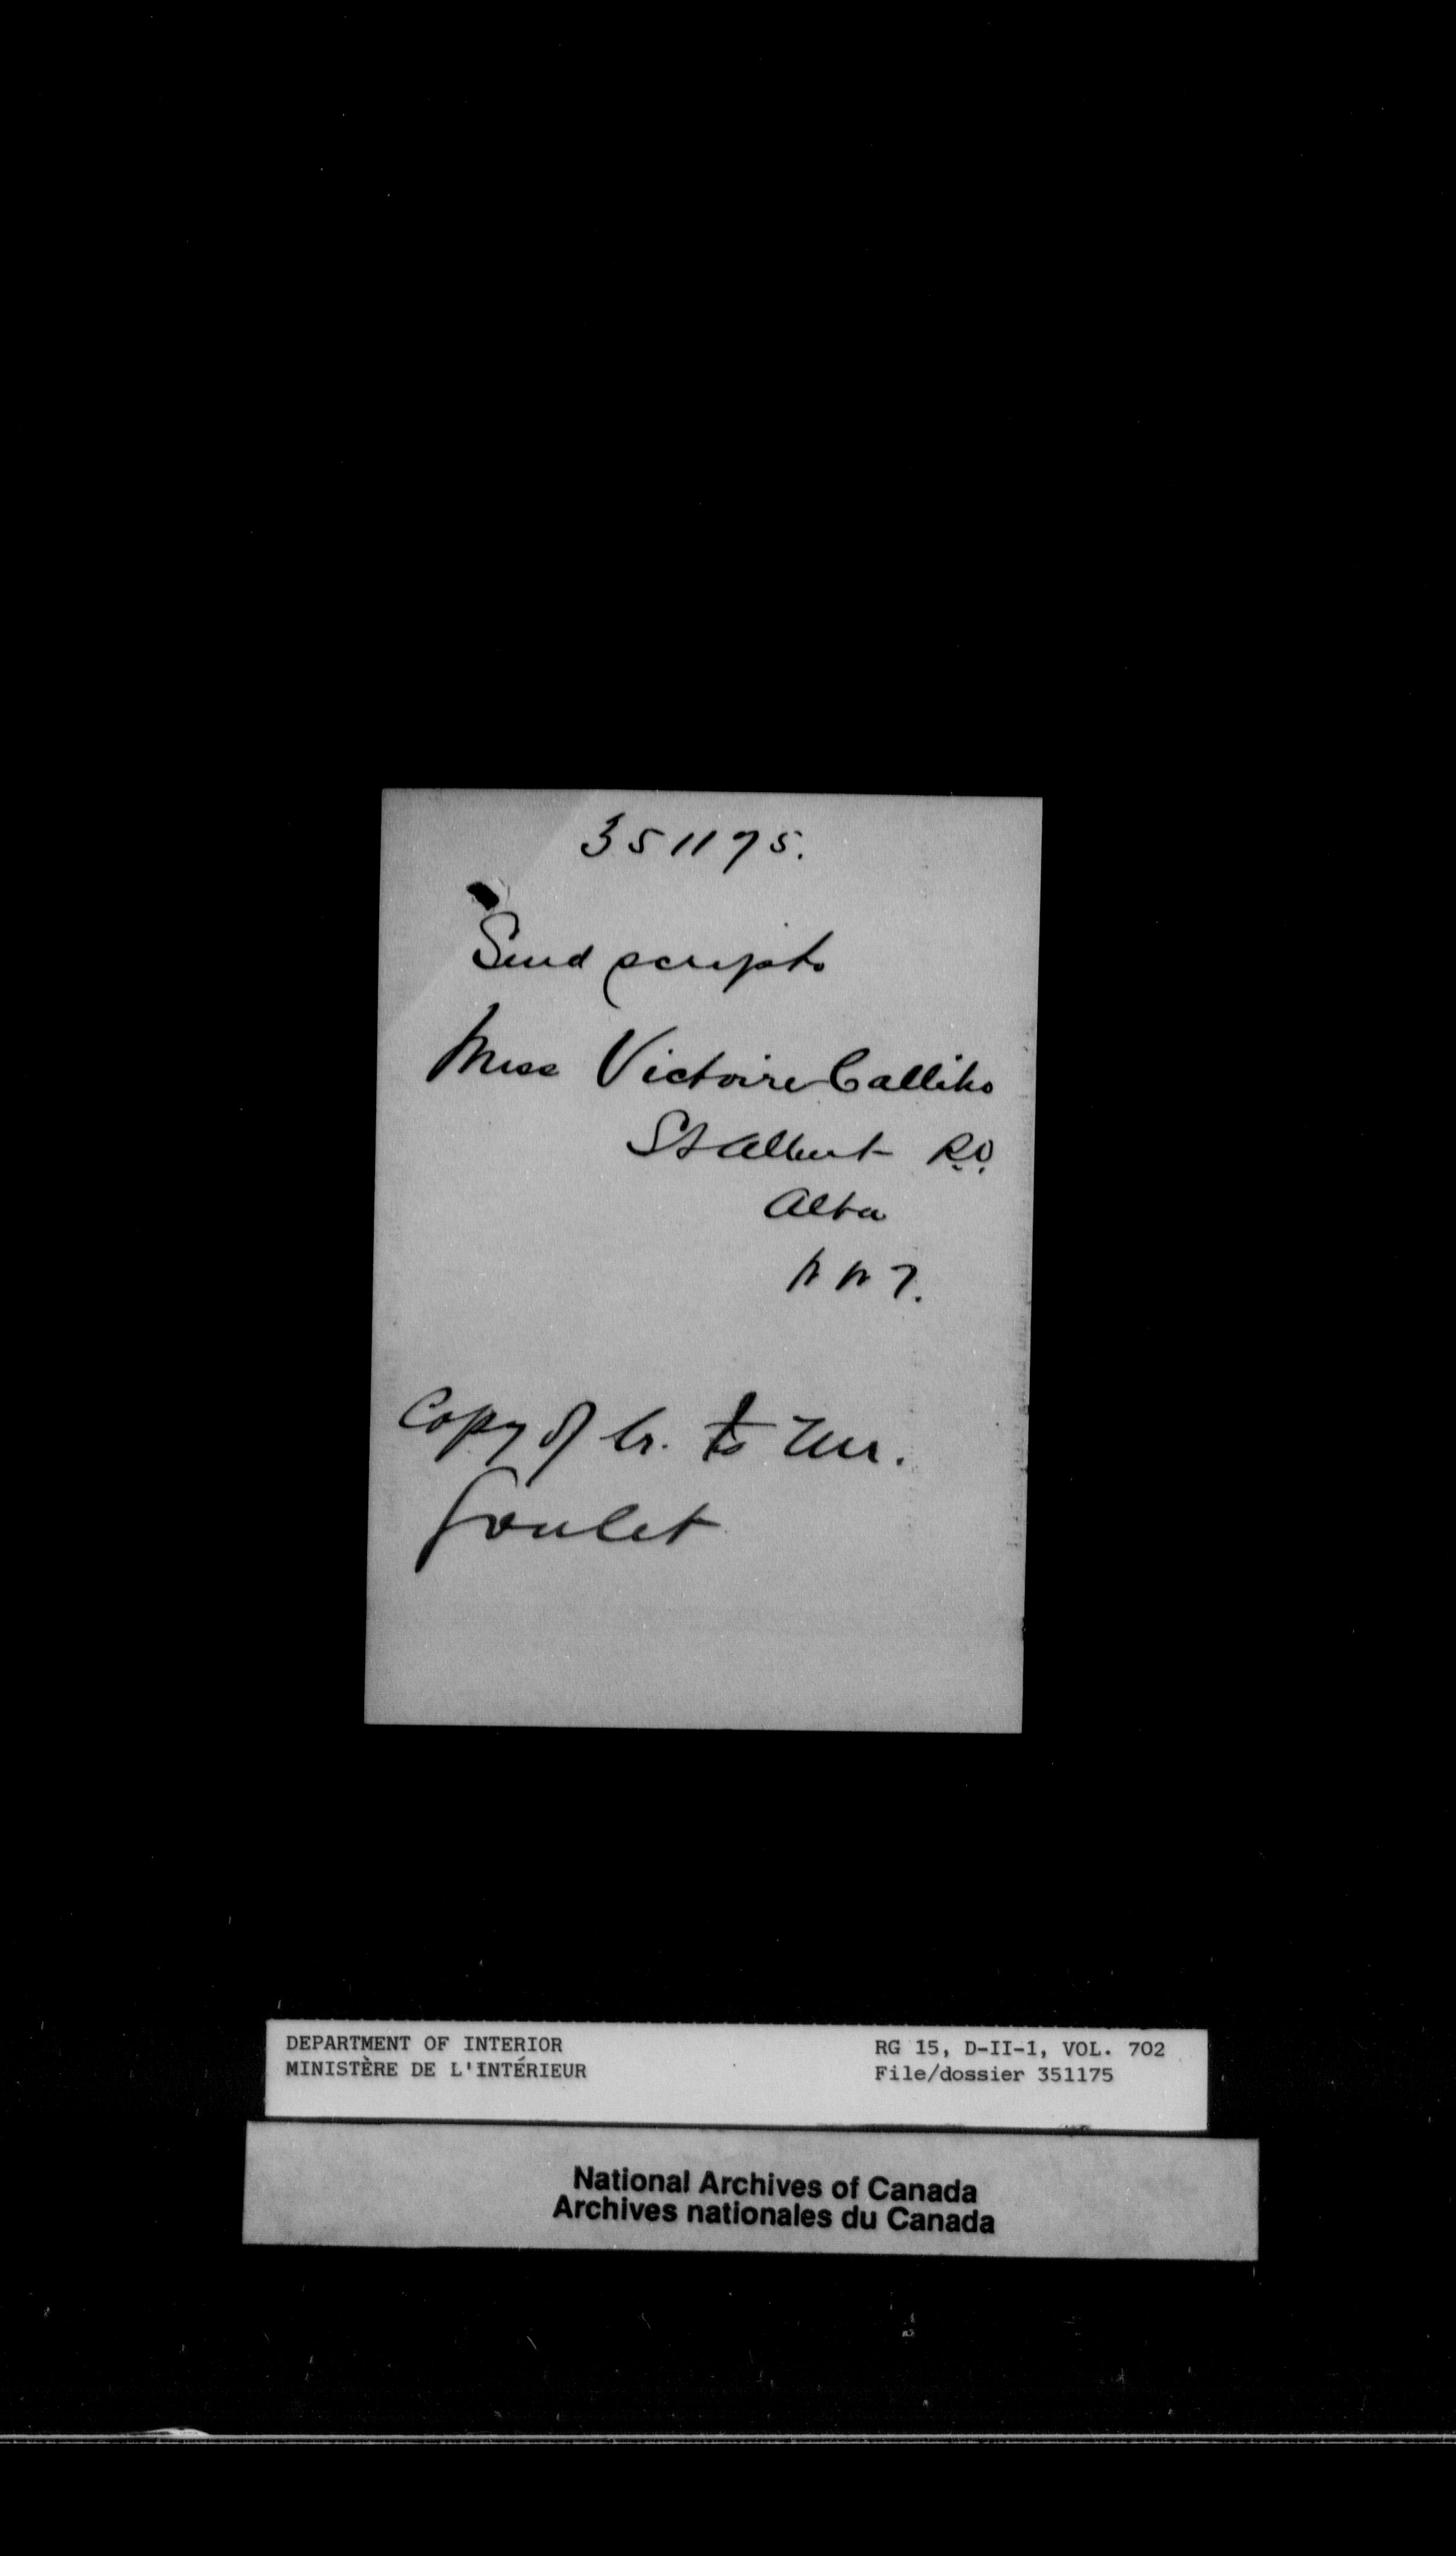 351175.
Send scrip to
Miss Victoire Calliho
St Albert P.O.
Alta
N W T.
Copy of lr. to Mr.
Goulet
DEPARTMENT OF INTERIOR
MINISTÈRE DE L'INTÉRIEUR
RG 15, D-II-1, VOL. 702
File/dossier 351175
National Archives of Canada
Archives nationales du Canada